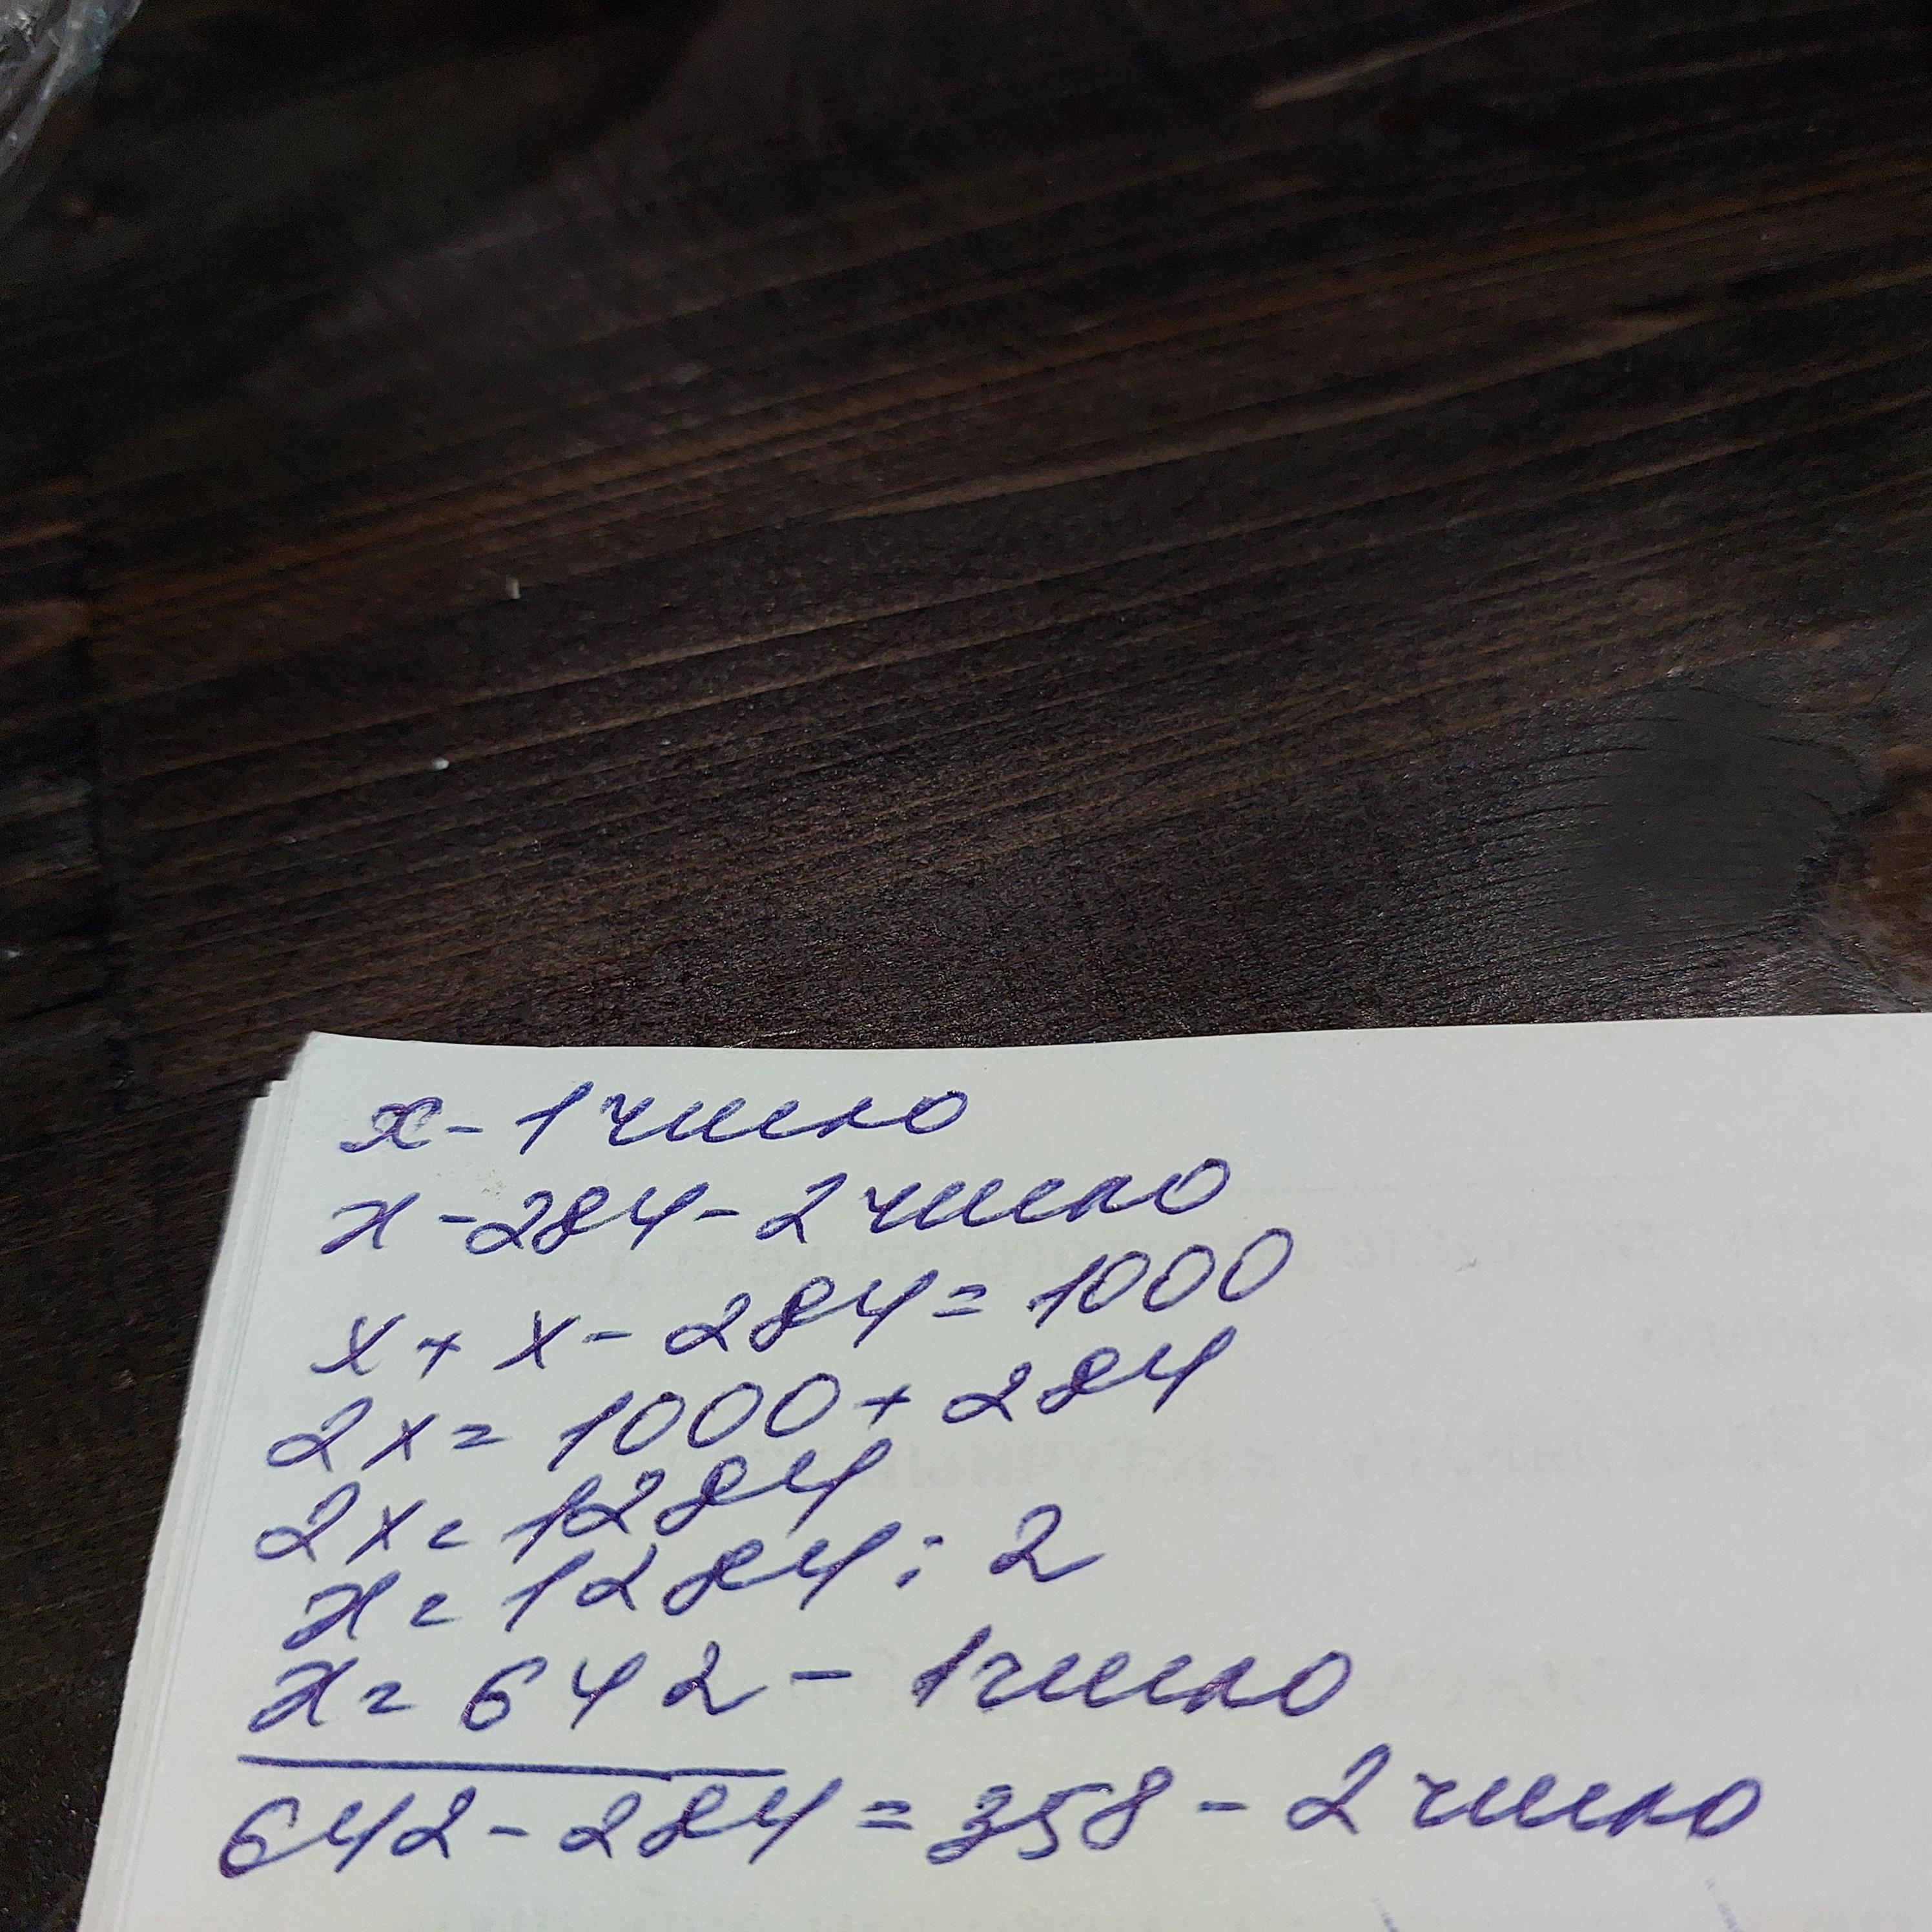 x - 1 число
x - 284 - 2 число
x + x - 284 = 1000
2x = 1000 + 284
2x = 1284
x = 1284 : 2
x = 642 - 1 число
642 - 284 = 358 - 2 число